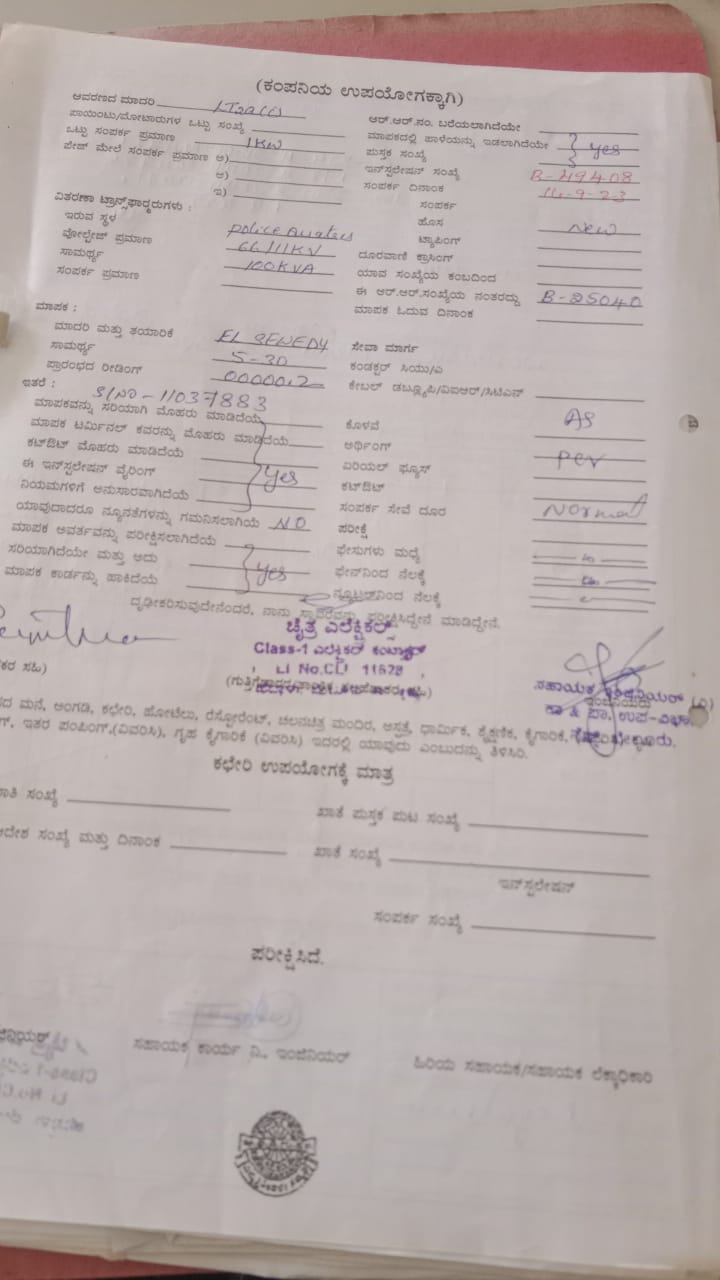 (ಕಂಪನಿಯ ಉಪಯೋಗಕ್ಕಾಗಿ)
ಆವರಣದ ಮಾದರಿ
ಪಾಯಿಂಟು/ಮೋಟಾರುಗಳ ಒಟ್ಟು ಸಂಖ್ಯೆ
ಒಟ್ಟು ಸಂಪರ್ಕ ಪ್ರಮಾಣ 1KW
ಫೇಜ್ ಮೇಲೆ ಸಂಪರ್ಕ ಪ್ರಮಾಣ ಅ)
ಆ)
ಇ)
ಆರ್.ಆರ್.ನಂ. ಬರೆಯಲಾಗಿದೆಯೇ
ಮಾಪಕದಲ್ಲಿ ಹಾಳೆಯನ್ನು ಇಡಲಾಗಿದೆಯೇ yes
ಪುಸ್ತಕ ಸಂಖ್ಯೆ
ಇನ್‌ಸ್ಟಲೇಷನ್ ಸಂಖ್ಯೆ B-49408
ಸಂಪರ್ಕ ದಿನಾಂಕ 14-9-23
ಸಂಪರ್ಕ
ಹೊಸ New
ಟ್ಯಾಪಿಂಗ್
ದೂರವಾಣಿ ಕ್ರಾಸಿಂಗ್
ಯಾವ ಸಂಖ್ಯೆಯ ಕಂಬದಿಂದ
ಈ ಆರ್.ಆರ್.ಸಂಖ್ಯೆಯ ನಂತರದ್ದು B-25040
ಮಾಪಕ ಓದುವ ದಿನಾಂಕ
ವಿತರಣಾ ಟ್ರಾನ್ಸ್‌ಫಾರ್ಮರುಗಳು :
ಇರುವ ಸ್ಥಳ Police
ವೋಲ್ಟೇಜ್ ಪ್ರಮಾಣ 66/11KV
ಸಾಮರ್ಥ್ಯ 100KVA
ಸಂಪರ್ಕ ಪ್ರಮಾಣ
ಮಾಪಕ :
ಮಾದರಿ ಮತ್ತು ತಯಾರಿಕೆ
ಸಾಮರ್ಥ್ಯ 5-30
ಪ್ರಾರಂಭದ ರೀಡಿಂಗ್ 000001.2
ಇತರೆ : S/NO-11037883
ಮಾಪಕವನ್ನು ಸರಿಯಾಗಿ ಮೊಹರು ಮಾಡಿದೆಯೆ
ಮಾಪಕ ಟರ್ಮಿನಲ್ ಕವರನ್ನು ಮೊಹರು ಮಾಡಿದೆಯೆ
ಕಟ್‌ಔಟ್ ಮೊಹರು ಮಾಡಿದೆಯೆ
ಈ ಇನ್‌ಸ್ಟಲೇಷನ್ ವೈರಿಂಗ್ yes
ನಿಯಮಗಳಿಗೆ ಅನುಸಾರವಾಗಿದೆಯೆ
ಯಾವುದಾದರೂ ನ್ಯೂನತೆಗಳನ್ನು ಗಮನಿಸಲಾಗಿಯೆ NO
ಮಾಪಕ ಆವರ್ತವನ್ನು ಪರೀಕ್ಷಿಸಲಾಗಿದೆಯೆ
ಸರಿಯಾಗಿದೆಯೇ ಮತ್ತು ಅದು yes
ಮಾಪಕ ಕಾರ್ಡನ್ನು ಹಾಕಿದೆಯೆ
ಸೇವಾ ಮಾರ್ಗ
ಕಂಡಕ್ಟರ್ ಸಿಯು/ಎ
ಕೇಬಲ್ ಡಬ್ಲ್ಯೂಪಿ/ವಿಐಆರ್/ಸಿಟಿಎಸ್
ಕೊಳವೆ As
ಅರ್ಥಿಂಗ್
ಏರಿಯಲ್ ಫ್ಯೂಸ್ Per
ಕಟ್‌ಔಟ್
ಸಂಪರ್ಕ ಸೇವೆ ದೂರ Normal
ಪರೀಕ್ಷೆ
ಫೇಸುಗಳು ಮಧ್ಯೆ
ಫೇಸ್‌ನಿಂದ ನೆಲಕ್ಕೆ
ನ್ಯೂಟ್ರಲ್‌ನಿಂದ ನೆಲಕ್ಕೆ
ದೃಢೀಕರಿಸುವುದೇನೆಂದರೆ, ನಾನು ಸ್ಥಾವರವನ್ನು ಪರೀಕ್ಷಿಸಿದ್ದೇನೆ ಮಾಡಿದ್ದೇನೆ.
ಚೈತ್ರ ಎಲೆಕ್ಟ್ರಿಕಲ್ಸ್
Class-1 ಎಲೆಕ್ಟ್ರಿಕಲ್ ಕಂಟ್ರಾಕ್ಟರ್
LI No.CLI 11579
ಕರ ಸಹಿ)
ಸಹಾಯಕ ಇಂಜಿನಿಯರ್ (ವಿ)
ಇಂಜಿನಿಯರು
ಕಾ & ಪಾ, ಉಪ-ವಿಭಾಗ
ದ ಮನೆ, ಅಂಗಡಿ, ಕಛೇರಿ, ಹೋಟೆಲು, ರೆಸ್ಟೋರೆಂಟ್, ಚಲನಚಿತ್ರ ಮಂದಿರ, ಆಸ್ಪತ್ರೆ, ಧಾರ್ಮಿಕ, ಶೈಕ್ಷಣಿಕ, ಕೈಗಾರಿಕೆ,
ಗ್, ಇತರ ಪಂಪಿಂಗ್,(ವಿವರಿಸಿ), ಗೃಹ ಕೈಗಾರಿಕೆ (ವಿವರಿಸಿ) ಇದರಲ್ಲಿ ಯಾವುದು ಎಂಬುದನ್ನು ತಿಳಿಸಿರಿ.
ಕಛೇರಿ ಉಪಯೋಗಕ್ಕೆ ಮಾತ್ರ
ಾತಿ ಸಂಖ್ಯೆ
ಖಾತೆ ಪುಸ್ತಕ ಪುಟ ಸಂಖ್ಯೆ
ಆದೇಶ ಸಂಖ್ಯೆ ಮತ್ತು ದಿನಾಂಕ
ಖಾತೆ ಸಂಖ್ಯೆ
ಇನ್‌ಸ್ಟಲೇಷನ್
ಸಂಪರ್ಕ ಸಂಖ್ಯೆ
ಪರೀಕ್ಷಿಸಿದೆ.
ಜಿನಿಯರ್
ಸಹಾಯಕ ಕಾರ್ಯ ನಿ., ಇಂಜಿನಿಯರ್
ಹಿರಿಯ ಸಹಾಯಕ/ಸಹಾಯಕ ಲೆಕ್ಕಾಧಿಕಾರಿ